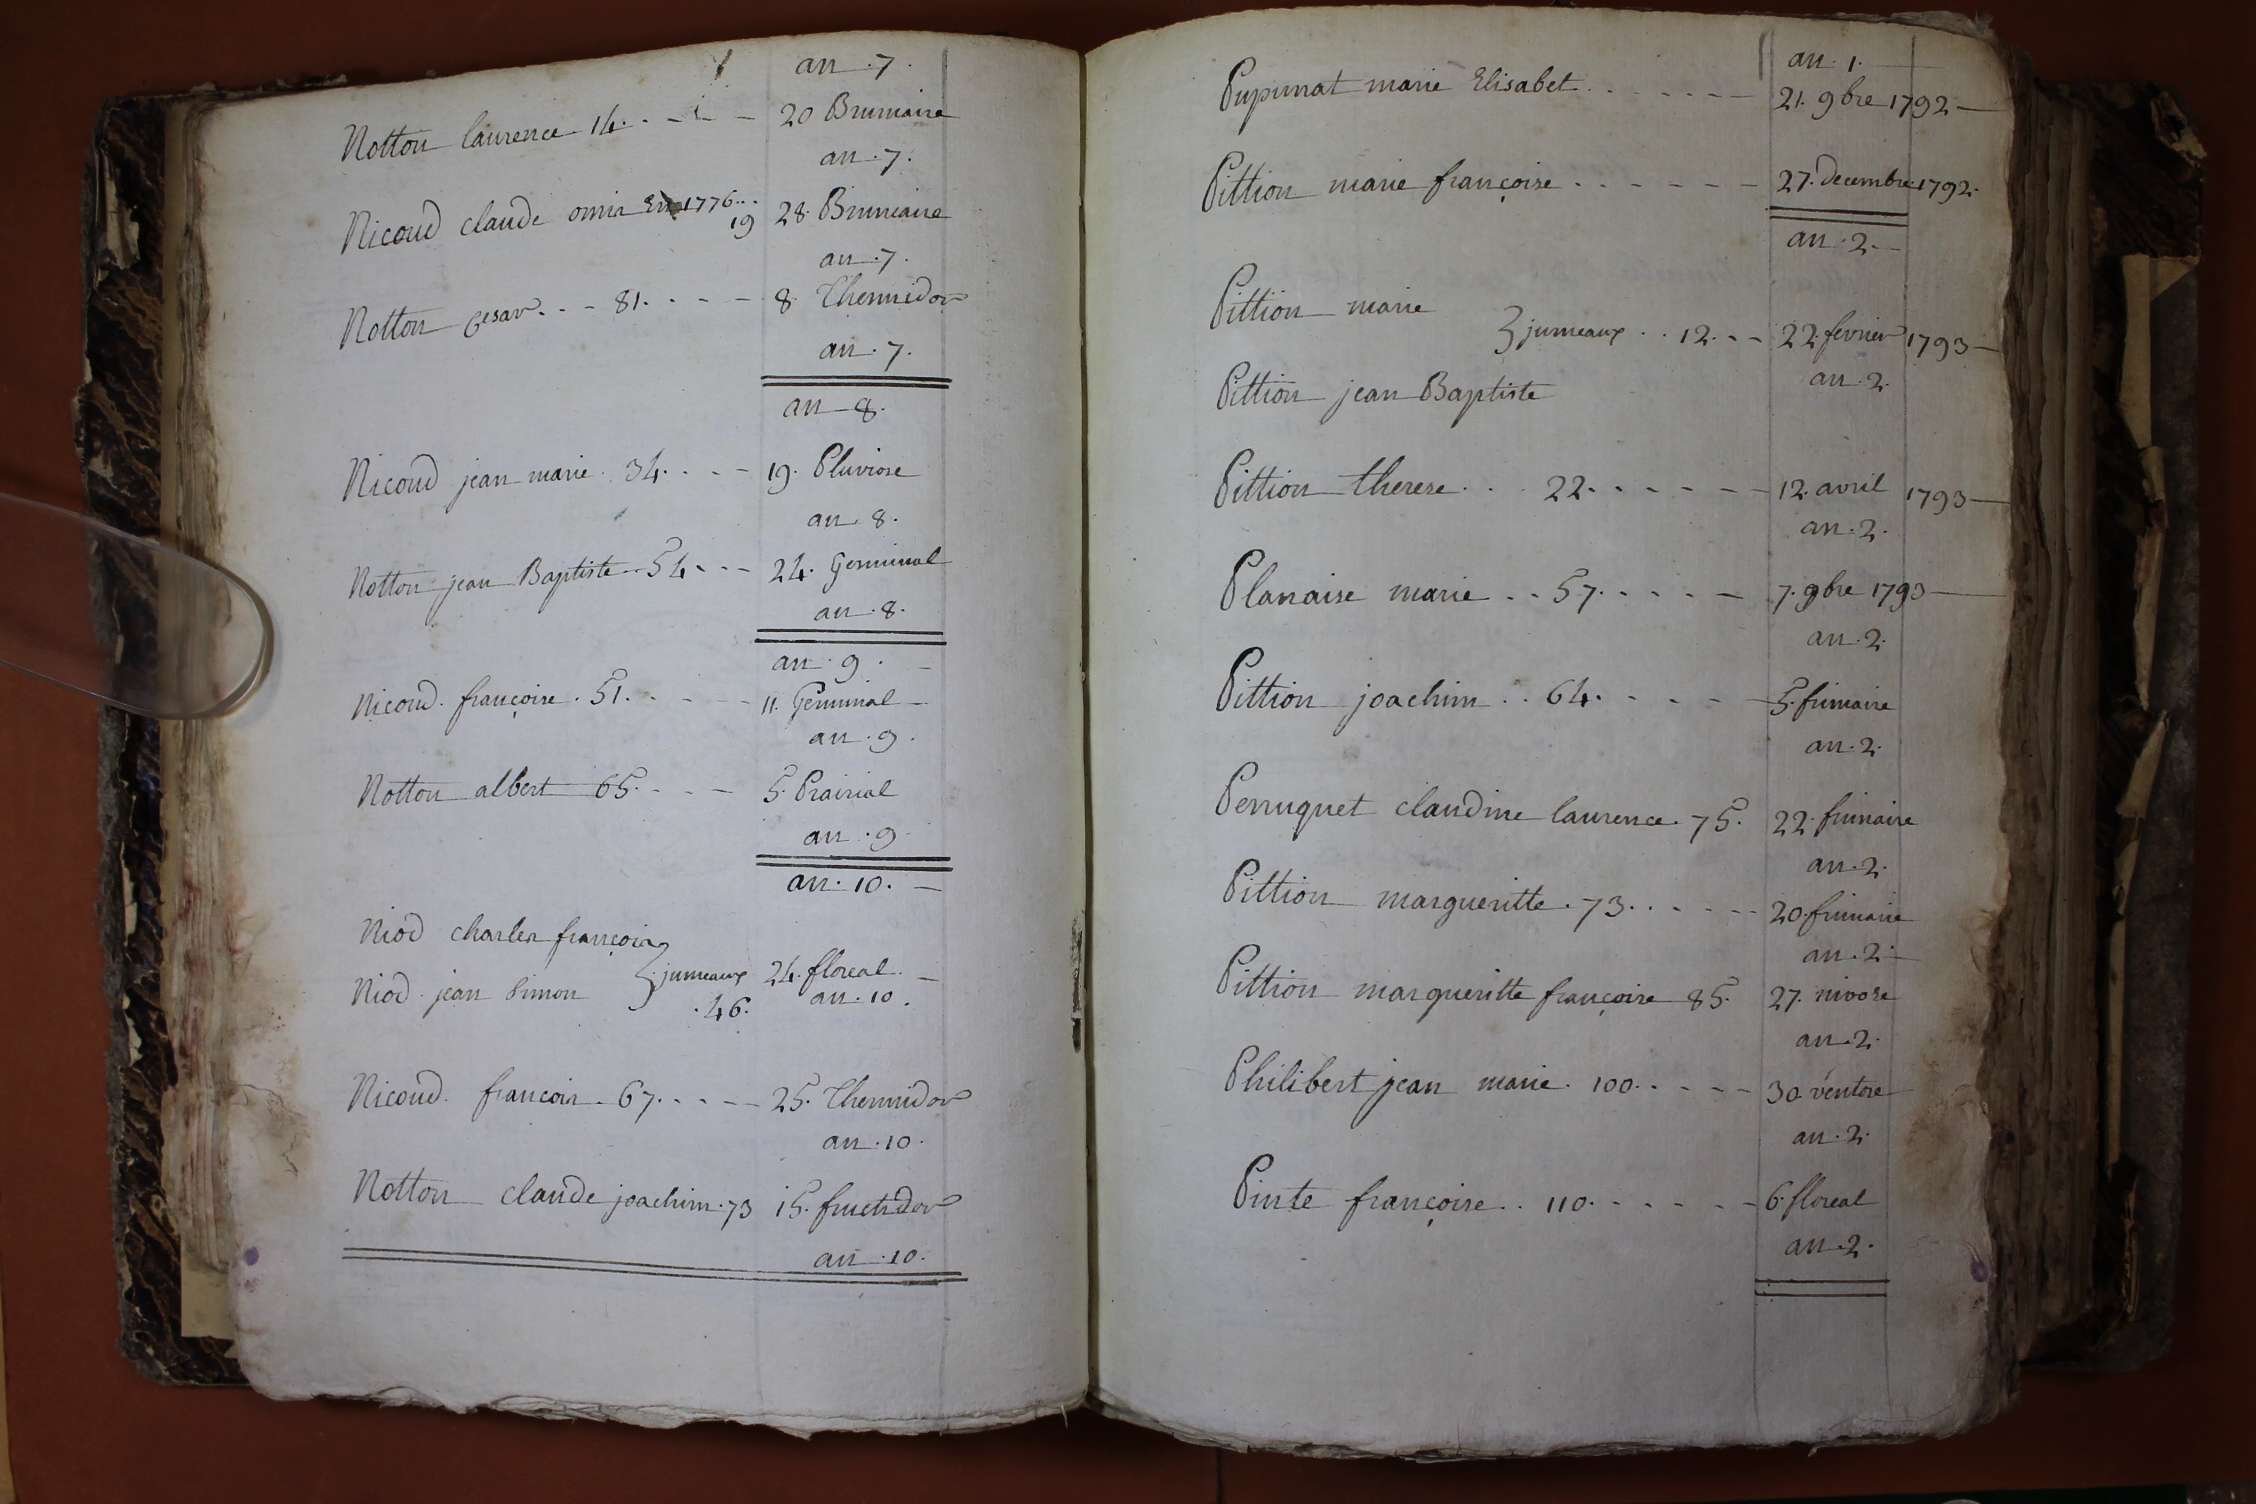 an . 7 .
Notton laurence 14. . - - - 20 Brumaire
an . 7 .
Nicoud claude omis en 1776...
19 28. Brumaire
an . 7 .
Notton cesar. . - 81. - - - 8. Thermidor
an . 7 .
an 8.
Nicoud jean marie . 34. . . - 19. Pluviose
an . 8 .
Notton jean Baptiste . 54. - - 24. Germinal
an . 8 .
an . 9 . -
Nicoud . françoise . 51. . - - - 11. Germinal
an . 9 .
Notton albert 65. - - - 5. Prairial
an . 9
an . 10 . -
Niod charles françois
Niod . jean simon } jumeaux 24. floreal . -
. 46 . an . 10 .
Nicoud . francois . 67. . - - - 25. Thermidor
an . 10 .
Notton claude joachim . 73 15. fructidor
an . 10 .
an . 1 .
Pupunat marie Elisabet . . . . . - - 21. 9bre 1792 -
Pittion marie françoise . - - - - - - 27. decembre 1792.
an . 2 . -
Pittion marie
} jumeaux . . 12. - - 22. fevrier 1793 -
Pittion jean Baptiste an . 2 .
Pittion therese . . 22. - - - - - - 12. avril 1793 -
an . 2 .
Planaise marie . . 57. . - . - - 7. 9bre 1793 -
an . 2 .
Pittion joachim . . 64. - - - - 5. frimaire
an . 2 .
Perruquet claudine laurence . 75. 22. frimaire
an . 2 .
Pittion margueritte . 73. . . - - - 20. frimaire
an . 2 . -
Pittion margueritte françoise 85. 27. nivose
an . 2 .
Philibert jean marie . 100. . - - - 30 ventose
an . 2 .
Pinte françoise . . 110. - - - - - 6. floreal
an . 2 .